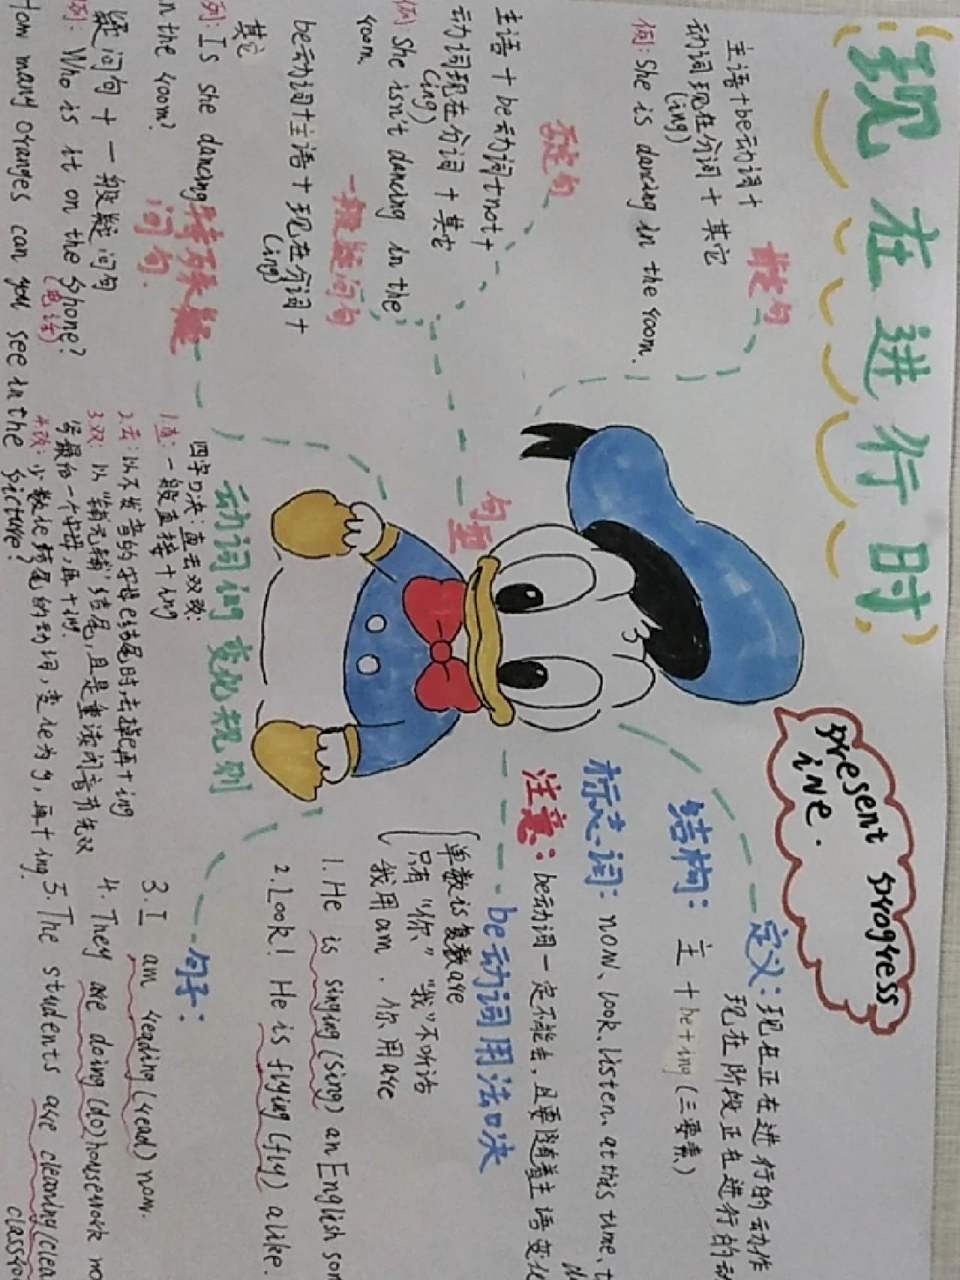 现在进行时
present progress
ine.
肯定句
主语+be动词+
动词现在分词+其它
(ing)
例: She is dancing in the room.
否定句
主语+be动词+not+
动词现在分词+其它
(ing)
例: She isn't dancing in the
room
一般疑问句
be动词+主语+现在分词+
(ing)
其它
例: Is she dancing
in the room?
特殊疑
问句.
疑问句+一般疑问句
例: Who is it on the phone?
(电话)
How many oranges can you see in the picture?
句型
定义: 现在正在进行的动作
现在阶段正在进行的动
结构: 主+be+ing(三要素)
标志词: now、look、listen、at this time、
注意: be动词一定不能丢,且要随着主语变化
be动词用法口决
单数is复数are
只有“你”“我”不听话
我用am.你用are
动词ing变化规则
四字口决:直去双改:
1.直:一般直接+ing
2.去:以不发音的字母e结尾时,去掉e再+ing
3.双:以“辅元辅”结尾,且是重读闭音节先双
写最后一个字母,再+ing.
4.改:少数ie结尾的动词,变ie为y,再+ing.
句子:
1. He is singing (sing) an English son
2. Look! He is flying (fly) a kite.
3. I am reading (read) now.
4. They are doing (do) housework no
5. The students are cleaning/clea
classroo